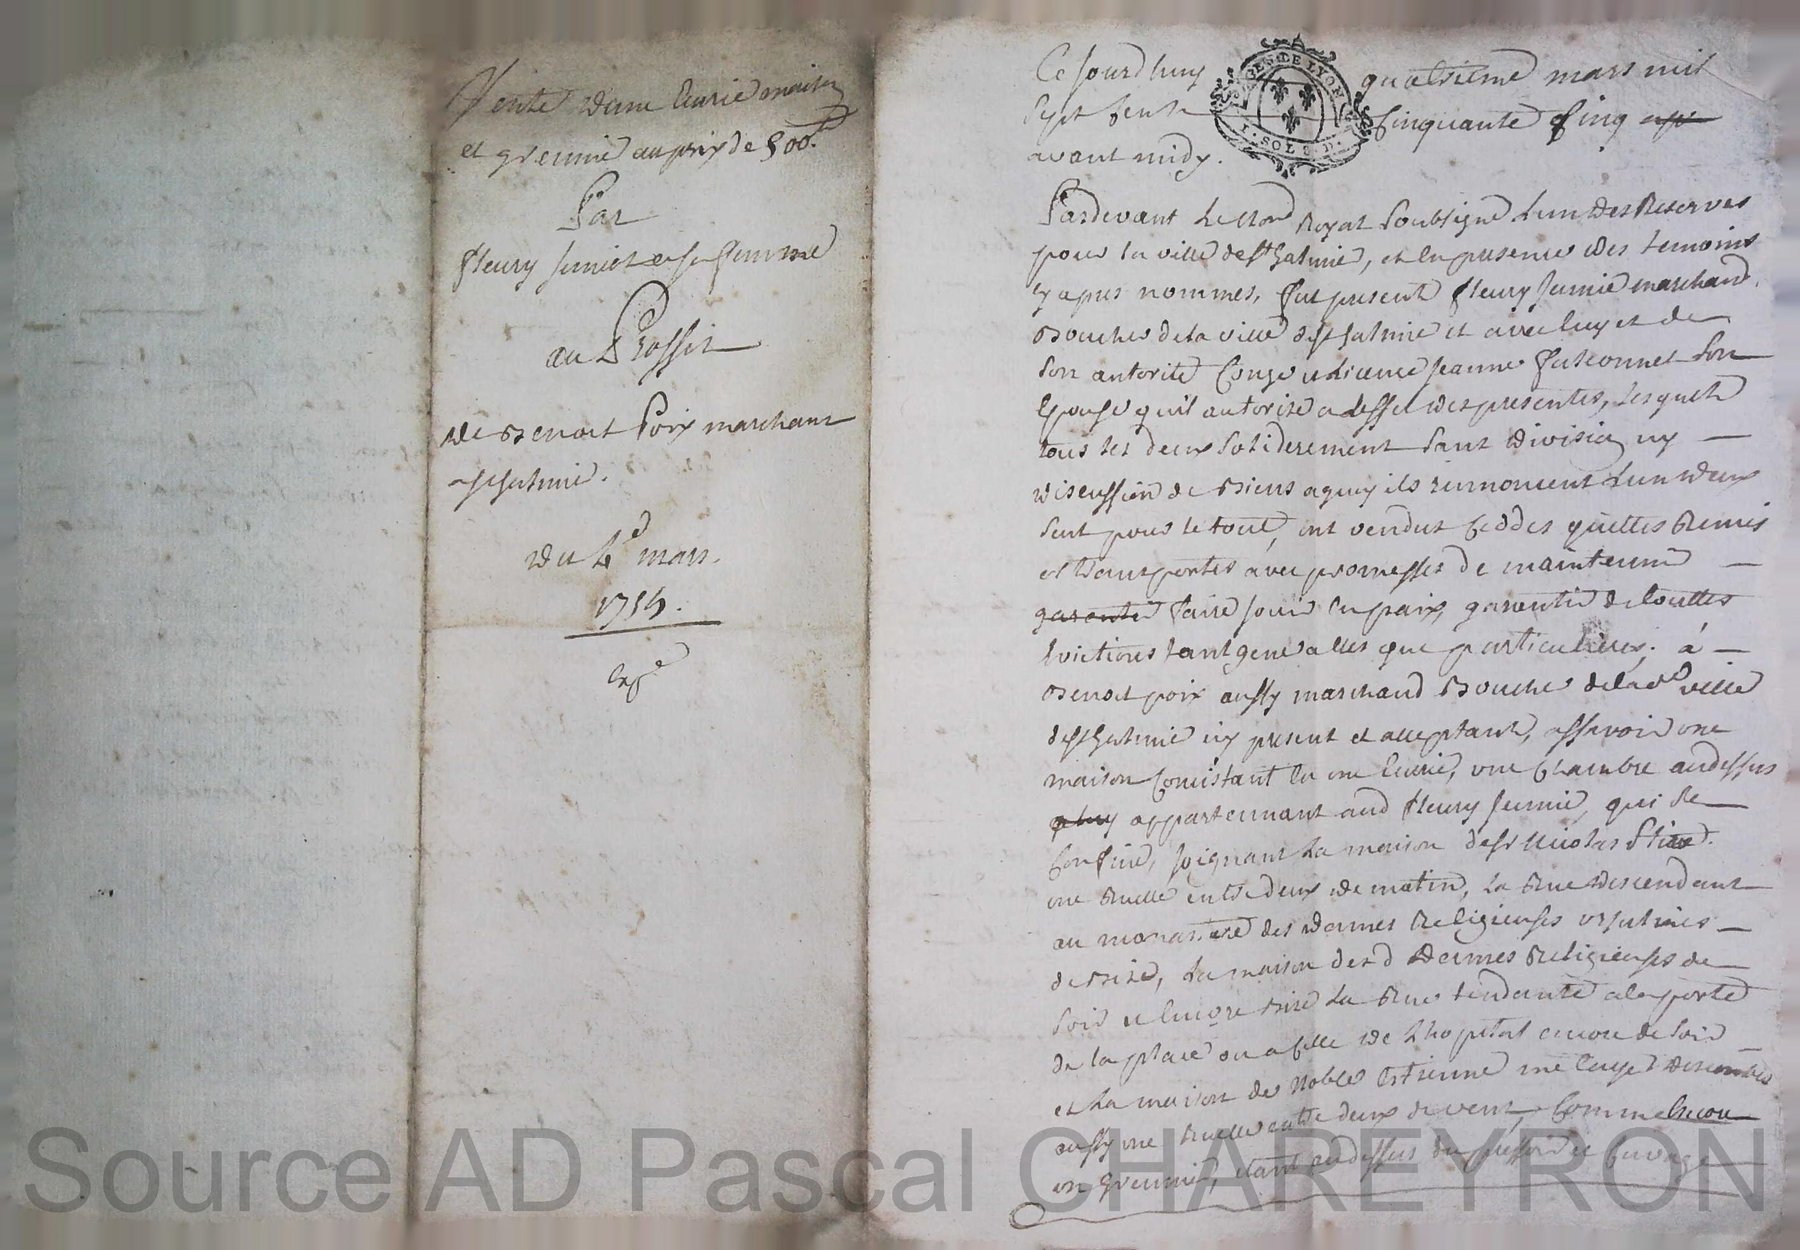 Vente d'une Ecurie maison
et grennié au prix de 500lt
Par
fleury Junié et sa femme
au Proffit
de Benoit Poix marchant
a st galmié.
du 4e mars.
1755.
Exp
Ce Jourdhuy quatrieme mars mil
Sept Cents Cinquante Cinq ap
avant midy.
GES DE LYON
SOLS D
Pardevant Le Nore Royal Soubsigné Lun des Reservés
pour la ville de st Galmié, et En presence des temoins
cy apres nommes, fut present fleury Junié marchand
Boucher de la ville de st galmié et avec luy et de
Son autorité Congé et Licence Jeanne faconnet Son
Epouse qu'il autorize a l'effet des presentes, Lesquels
tous les deux Soliderement Sans Division ny
discussion de Biens a quoy ils rennoncent Lun deux
Seul pour le tout, ont vendus Ceddes quittes Remis
et transportes avec promesses de maintenir
garentir faire Jouir En paix, garentir de touttes
Evictions tant generalles que particulieres, á
Benoit poix aussy marchand Boucher de lad ville
de st Galmié icy present et acceptant, assavoir une
maison Consistant En une Ecurie, une Chambre audessus
a luy appartennant aud fleury Junié, qui Se
Confine, Joignant La maison de sr Nicolas
une Ruelle entre deux de matin, La Rue descendant
au monastere des dames Religieuses ursulines
de Bize, La maison desd Dames Religieuses de
Soir et Encore Bize La Rue tendante a la porte
de la place ou a Celle de L'hopital encore de Soir
et La maison de Noble Estienne
aussy une Ruelle entre deux de vent, Comme Encore
un Grennié, étant au dessus du pressoir et Cuvage
Source AD Pascal CHAREYRON